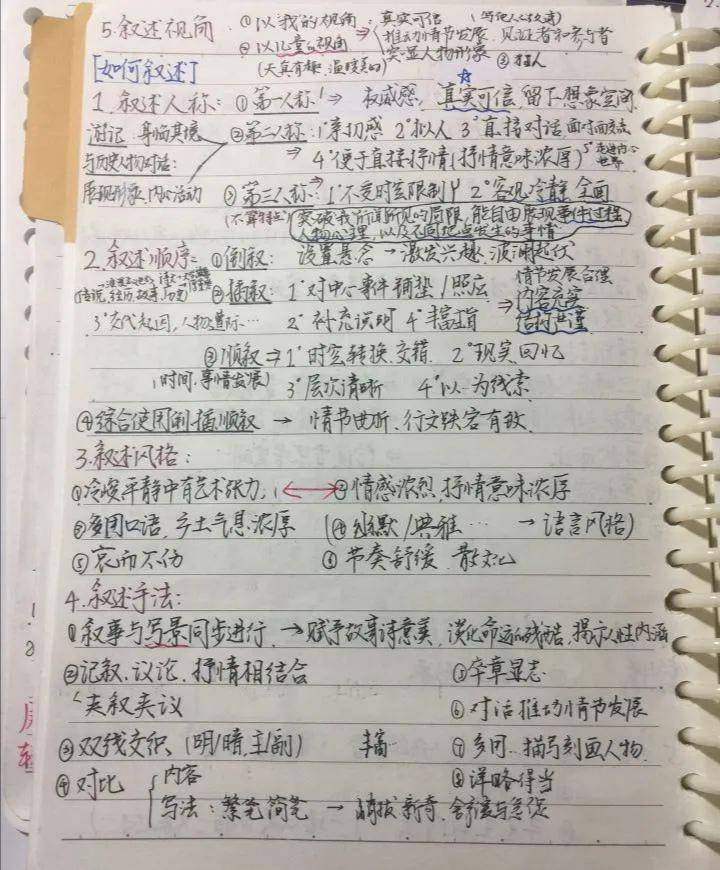 5.叙述视角 ①以"我"的视角:真实可信
②以儿童的视角 → 推动情节发展、见证者和参与者
(天真有趣、温暖美好) 突显人物形象
[如何叙述]
1.叙述人称:①第一人称 → 权威感,真实可信 留下想象空间
游记:身临其境 ②第二人称:1°亲切感 2°拟人 3°直接对话 面对面交流
与历史人物对话: → 4°便于直接抒情(抒情意味浓厚) 5°走进内心世界
展现形象、内心活动 ③第三人称:→1°不受时空限制 2°客观冷静 全面
突破我所闻所见的局限,能自由展现事件过程
人物心理,以及不同地点发生的事情
2.叙述顺序:①倒叙: 设置悬念 → 激发兴趣、波澜起伏
传说,经历,故事,历史 ②插叙:1°对中心事件铺垫/照应 → 情节发展合理
内容充实
3°交代起因,人物遭际… 2°补充说明 4°丰富主旨 结构严谨
③顺叙 ⇒ 1°时空转换交错 2°现实回忆
(时间、事情发展) 3°层次清晰 4°以一为线索
④综合使用倒插顺叙 → 情节曲折、行文跌宕有致
3.叙述风格:
①冷峻平静中有艺术张力 ←→ ②情感浓烈,抒情意味浓厚
③多用口语,乡土气息浓厚 (④幽默/典雅… → 语言风格)
⑤哀而不伤 ⑥节奏舒缓、散文化
4.叙述手法:
①叙事与写景同步进行 → 赋予故事诗意美,淡化命运的残酷,揭示人性内涵
②记叙、议论、抒情相结合 ⑤卒章显志
夹叙夹议 ⑥对话推动情节发展
③双线交织、(明/暗,主/副) 丰富 ⑦多用…描写刻画人物
④对比 { 内容 ⑧详略得当
写法:繁笔简笔 → 峭拔新奇、舍弃